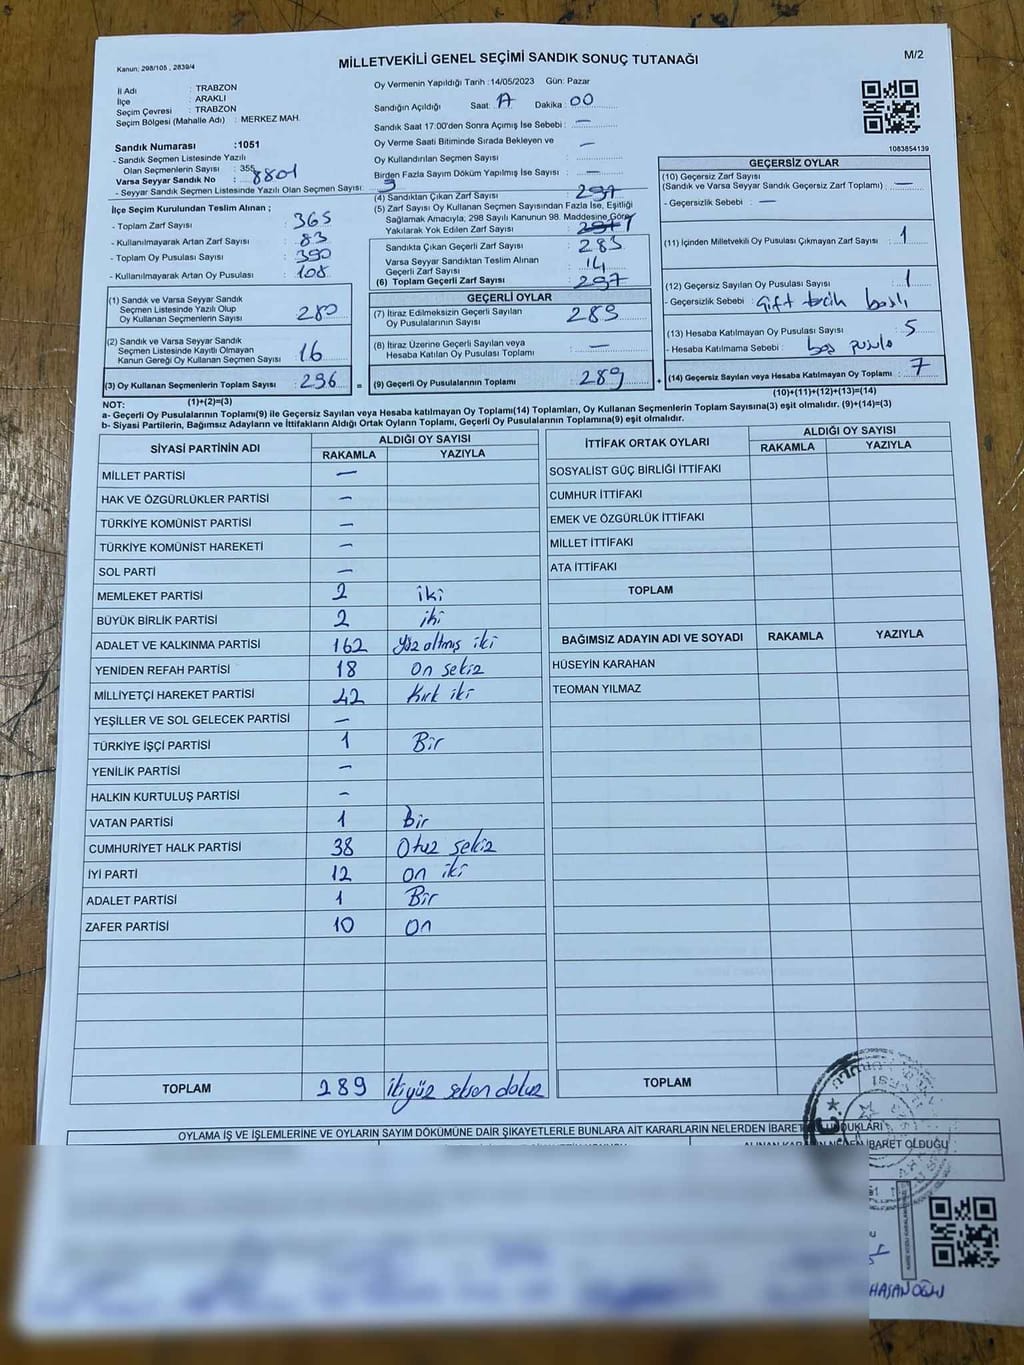 MİLLETVEKİLİ GENEL SEÇİMİ SANDIK SONUÇ TUTANAĞI
M/2
Kanun: 298/105 , 2839/4
İl Adı : TRABZON
İlçe : ARAKLI
Seçim Çevresi : TRABZON
Seçim Bölgesi (Mahalle Adı) : MERKEZ MAH.
Sandık Numarası :1051
- Sandık Seçmen Listesinde Yazılı
Olan Seçmenlerin Sayısı : 355
Varsa Seyyar Sandık No : 8801
- Seyyar Sandık Seçmen Listesinde Yazılı Olan Seçmen Sayısı:
Oy Vermenin Yapıldığı Tarih :14/05/2023 Gün: Pazar
Sandığın Açıldığı Saat: 17 Dakika: 00
Sandık Saat 17:00'den Sonra Açımış İse Sebebi : —
Oy Verme Saati Bitiminde Sırada Bekleyen ve
Oy Kullandırılan Seçmen Sayısı : —
Birden Fazla Sayım Döküm Yapılmış İse Sayısı : —
1083854139
İlçe Seçim Kurulundan Teslim Alınan ;
- Toplam Zarf Sayısı : 365
- Kullanılmayarak Artan Zarf Sayısı : 83
- Toplam Oy Pusulası Sayısı : 390
- Kullanılmayarak Artan Oy Pusulası : 108
(1) Sandık ve Varsa Seyyar Sandık
Seçmen Listesinde Yazılı Olup
Oy Kullanan Seçmenlerin Sayısı : 280
(2) Sandık ve Varsa Seyyar Sandık
Seçmen Listesinde Kayıtlı Olmayan
Kanun Gereği Oy Kullanan Seçmen Sayısı : 16
(3) Oy Kullanan Seçmenlerin Toplam Sayısı : 296
(1)+(2)=(3)
(4) Sandıktan Çıkan Zarf Sayısı : 297
(5) Zarf Sayısı Oy Kullanan Seçmen Sayısından Fazla İse, Eşitliği
Sağlamak Amacıyla; 298 Sayılı Kanunun 98. Maddesine Göre
Yakılarak Yok Edilen Zarf Sayısı :
Sandıkta Çıkan Geçerli Zarf Sayısı : 283
Varsa Seyyar Sandıktan Teslim Alınan
Geçerli Zarf Sayısı : 14
(6) Toplam Geçerli Zarf Sayısı : 297
GEÇERLİ OYLAR
(7) İtiraz Edilmeksizin Geçerli Sayılan
Oy Pusulalarının Sayısı : 289
(8) İtiraz Üzerine Geçerli Sayılan veya
Hesaba Katılan Oy Pusulası Toplamı : —
= (9) Geçerli Oy Pusulalarının Toplamı : 289 +
GEÇERSİZ OYLAR
(10) Geçersiz Zarf Sayısı
(Sandık ve Varsa Seyyar Sandık Geçersiz Zarf Toplamı) : —
- Geçersizlik Sebebi : —
(11) İçinden Milletvekili Oy Pusulası Çıkmayan Zarf Sayısı : 1
(12) Geçersiz Sayılan Oy Pusulası Sayısı : 1
- Geçersizlik Sebebi : Çift tercih baslı
(13) Hesaba Katılmayan Oy Pusulası Sayısı : 5
- Hesaba Katılmama Sebebi : boş pusula
(14) Geçersiz Sayılan veya Hesaba Katılmayan Oy Toplamı : 7
(10)+(11)+(12)+(13)=(14)
NOT:
a- Geçerli Oy Pusulalarının Toplamı(9) ile Geçersiz Sayılan veya Hesaba katılmayan Oy Toplamı(14) Toplamları, Oy Kullanan Seçmenlerin Toplam Sayısına(3) eşit olmalıdır. (9)+(14)=(3)
b- Siyasi Partilerin, Bağımsız Adayların ve İttifakların Aldığı Ortak Oyların Toplamı, Geçerli Oy Pusulalarının Toplamına(9) eşit olmalıdır.
SİYASİ PARTİNİN ADI ALDIĞI OY SAYISI
RAKAMLA YAZIYLA
MİLLET PARTİSİ —
HAK VE ÖZGÜRLÜKLER PARTİSİ —
TÜRKİYE KOMÜNİST PARTİSİ —
TÜRKİYE KOMÜNİST HAREKETİ —
SOL PARTİ —
MEMLEKET PARTİSİ 2 iki
BÜYÜK BİRLİK PARTİSİ 2 iki
ADALET VE KALKINMA PARTİSİ 162 Yüz altmış iki
YENİDEN REFAH PARTİSİ 18 On sekiz
MİLLİYETÇİ HAREKET PARTİSİ 42 Kırk iki
YEŞİLLER VE SOL GELECEK PARTİSİ —
TÜRKİYE İŞÇİ PARTİSİ 1 Bir
YENİLİK PARTİSİ —
HALKIN KURTULUŞ PARTİSİ —
VATAN PARTİSİ 1 Bir
CUMHURİYET HALK PARTİSİ 38 Otuz sekiz
İYİ PARTİ 12 on iki
ADALET PARTİSİ 1 Bir
ZAFER PARTİSİ 10 On
TOPLAM 289 ikiyüz seksen dokuz
İTTİFAK ORTAK OYLARI ALDIĞI OY SAYISI
RAKAMLA YAZIYLA
SOSYALİST GÜÇ BİRLİĞİ İTTİFAKI
CUMHUR İTTİFAKI
EMEK VE ÖZGÜRLÜK İTTİFAKI
MİLLET İTTİFAKI
ATA İTTİFAKI
TOPLAM
BAĞIMSIZ ADAYIN ADI VE SOYADI RAKAMLA YAZIYLA
HÜSEYİN KARAHAN
TEOMAN YILMAZ
TOPLAM
OYLAMA İŞ VE İŞLEMLERİNE VE OYLARIN SAYIM DÖKÜMÜNE DAİR ŞİKAYETLERLE BUNLARA AİT KARARLARIN NELERDEN İBARET OLDUKLARI
İBARET OLDUĞU
HASANOĞLU